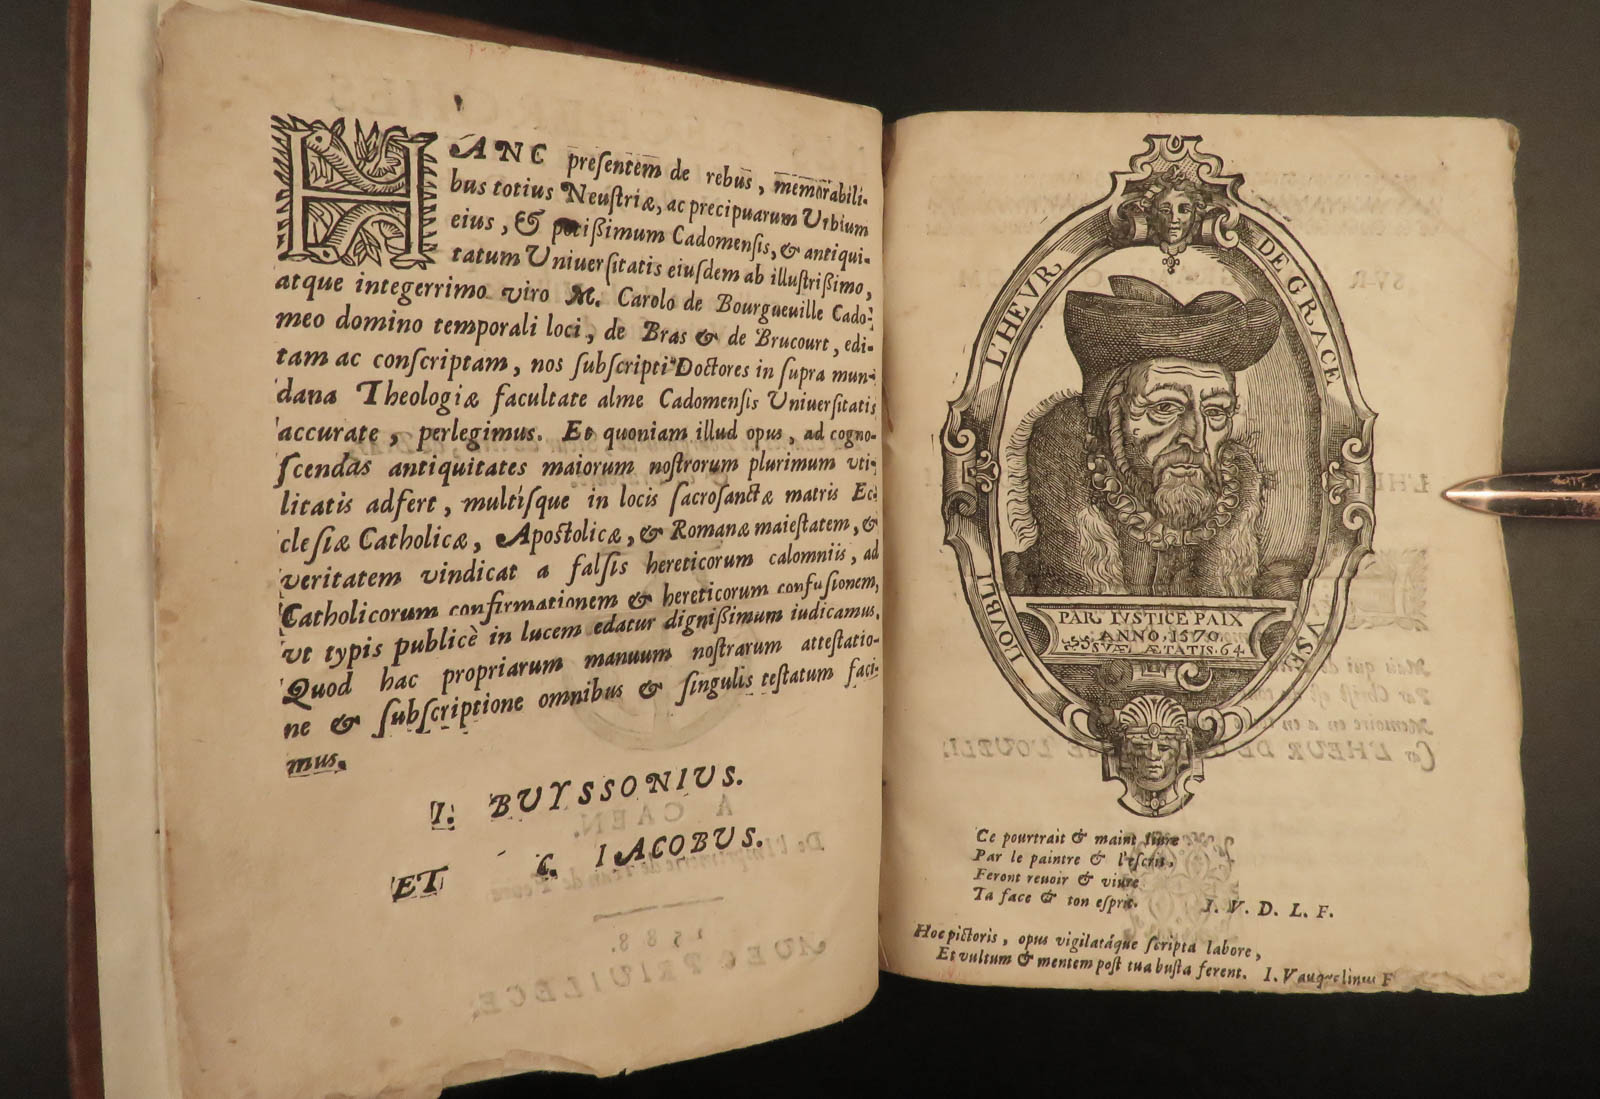 HANC preſentem de rebus, memorabili-
bus totius Neuſtriæ, ac precipuarum Urbium
eius, & potiſſimum Cadomenſis, & antiqui-
tatum Uniuerſitatis eiuſdem ab illuſtriſſimo,
atque integerrimo viro M. Carolo de Bourgueuille Cado-
meo domino temporali loci, de Bras & de Brucourt, edi-
tam ac conſcriptam, nos ſubſcripti Doctores in ſupra mun-
dana Theologiæ facultate alme Cadomenſis Uniuerſitatis
accurate, perlegimus. Et quoniam illud opus, ad cogno-
ſcendas antiquitates maiorum noſtrorum plurimum vti-
litatis adfert, multiſque in locis ſacroſanctæ matris Ec-
cleſiæ Catholicæ, Apoſtolicæ, & Romanæ maieſtatem, &
veritatem vindicat a falſis hereticorum calomniis, ad
Catholicorum confirmationem & hereticorum confuſionem,
vt typis publicè in lucem edatur digniſſimum iudicamus.
Quod hac propriarum manuum noſtrarum atteſtatio-
ne & ſubſcriptione omnibus & ſingulis teſtatum faci-
mus.
I. BUYSSONIUS.
ET C. IACOBUS.
L'HEVR DE GRACE
L'OVBLI VSE
PAR IVSTICE PAIX
ANNO, 1570
SVÆ, ÆTATIS. 64
Ce pourtrait & maint liure
Par le paintre & l'eſcrit,
Feront reuoir & viure
Ta face & ton eſprit.
I. V. D. L. F.
Hoc pictoris, opus vigilatáque ſcripta labore,
Et vultum & mentem poſt tua buſta ferent. I. Vauquelinus F